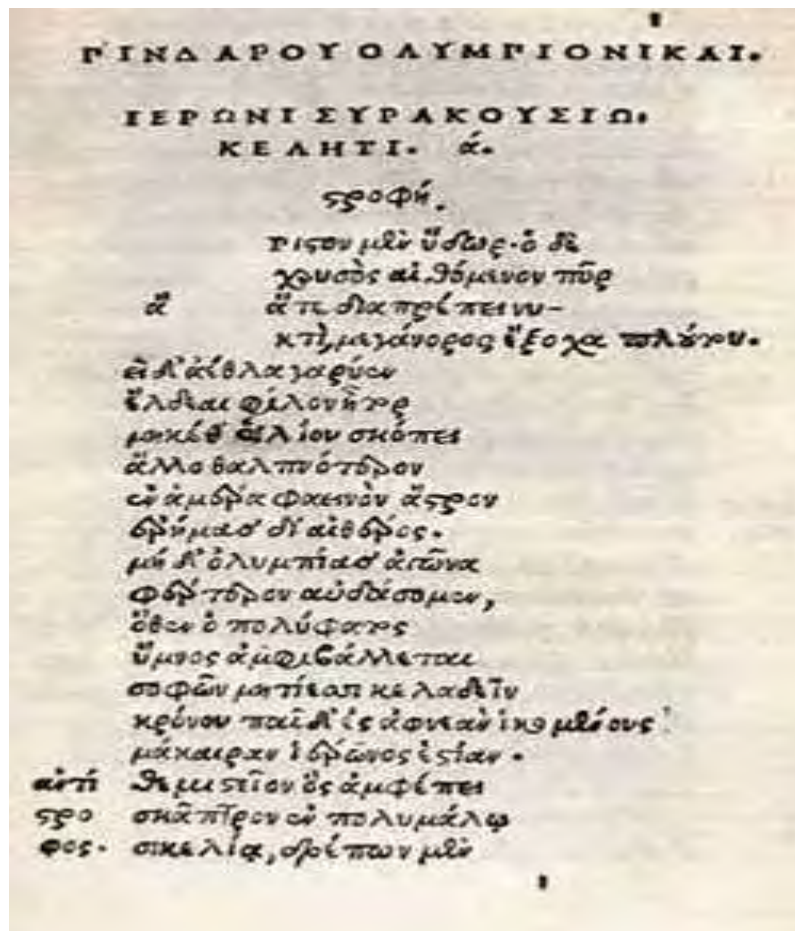 1
ΠΙΝΔΑΡΟΥ ΟΛΥΜΠΙΟΝΙΚΑΙ.
ΙΕΡΩΝΙ ΣΥΡΑΚΟΥΣΙΩ.
ΚΕΛΗΤΙ. ά.
στροφή.
ριστον μὲν ὕδωρ· ὁ δὲ
χρυσὸς αἰθόμενον πῦρ
ἄ ἅτε διαπρέπει νυ-
κτὶ, μεγάνορος ἔξοχα πλούτου.
εἰ δ' ἄεθλα γαρύεν
ἔλδεαι φίλον ἦτορ
μηκέθ' ἁελίου σκόπει
ἄλλο θαλπνότερον
ἐν ἁμέρα φαεινὸν ἄστρον
ἐρήμας δι' αἰθέρος.
μὴ δ' ὀλυμπίας ἀγῶνα
φέρτερον αὐδάσομεν,
ὅθεν ὁ πολύφατος
ὕμνος ἀμφιβάλλεται
σοφῶν μητίεσσι κελαδεῖν
κρόνου παῖδ' ἐς ἀφνεὰν ἱκομένους
μάκαιραν ἱέρωνος ἑστίαν.
ἀντί θεμιστεῖον ὃς ἀμφέπει
στρο σκᾶπτρον ἐν πολυμάλῳ
φος. σικελίᾳ, δρέπων μὲν
1